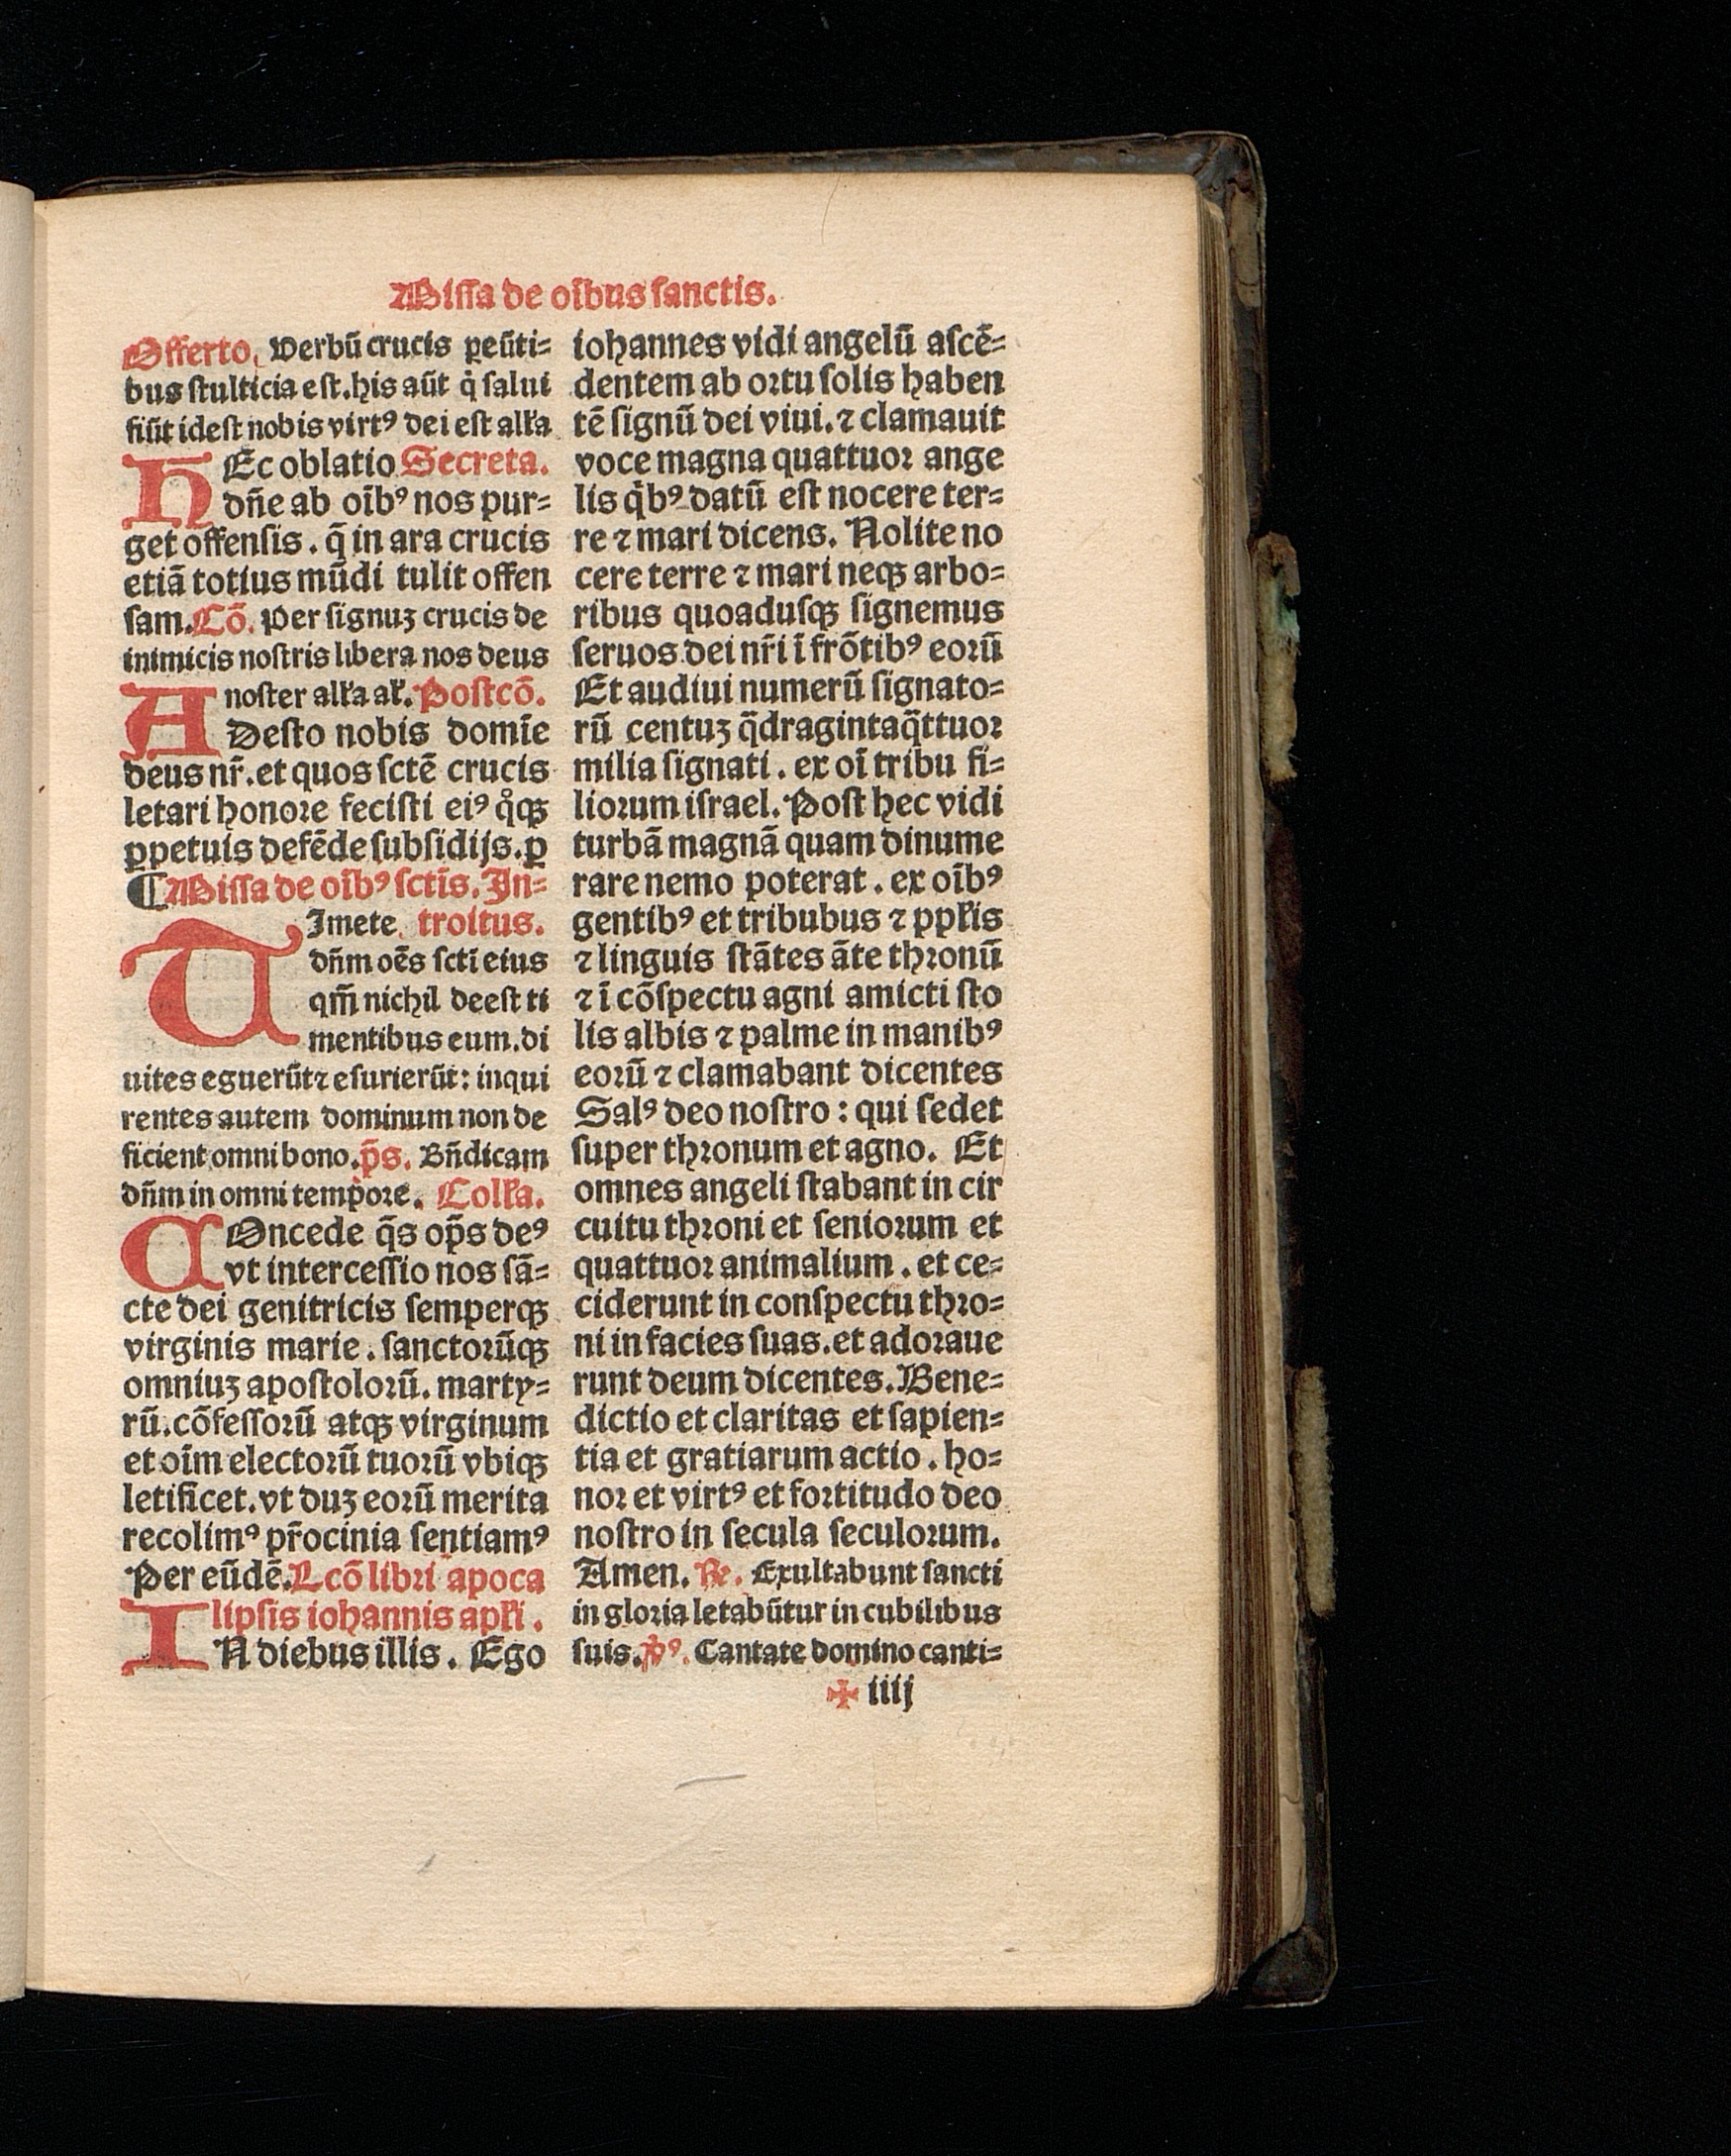 Missa de oībus sanctis.
Offerto. Verbū crucis ꝑeūti⸗
bus stulticia est. his aūt q̇ salui
fiūt idest nobis virtꝰ dei est alĺa
HEc oblatio Secreta.
dn̄e ab oībꝰ nos pur⸗
get offensis. q̄ in ara crucis
etiā totius mūdi tulit offen
sam. Cō. Per signuꝫ crucis de
inimicis nostris libera nos deus
noster alĺa aĺ. Postcō.
ADesto nobis domīe
deus nr̄. et quos sctē crucis
letari honore fecisti eiꝰ qͦqꝫ
ꝑpetuis defēde subsidijs. ꝑ
¶ Missa de oībꝰ sctīs. In⸗
TImete troitus.
dn̄m oēs sctī eius
qm̄ nichil deest ti
mentibus eum. di
uites eguerūt ⁊ esurierūt: inqui
rentes autem dominum non de
ficient omni bono. p̄s. Bn̄dicam
dn̄m in omni tempore. Colĺa.
COncede q̄s op̄s deꝰ
vt intercessio nos sā⸗
cte dei genitricis semperqꝫ
virginis marie. sanctorūqꝫ
omniuꝫ apostolorū. marty⸗
rū. cōfessorū atqꝫ virginum
et oīm electorū tuorū vbiqꝫ
letificet. vt duꝫ eorū merita
recolimꝰ pr̄ocinia sentiamꝰ
Per eūdē. Lcō libri apoca
lipsis iohannis apĺi.
IN diebus illis. Ego
iohannes vidi angelū ascē⸗
dentem ab ortu solis haben
tē signū dei viui. ⁊ clamauit
voce magna quattuor ange
lis q̇bꝰ datū est nocere ter⸗
re ⁊ mari dicens. Nolite no
cere terre ⁊ mari neqꝫ arbo⸗
ribus quoadusqꝫ signemus
seruos dei nr̄i ī frōtibꝰ eorū
Et audiui numerū signato⸗
rū centuꝫ q̄dragintaq̄ttuor
milia signati. ex oī tribu fi⸗
liorum israel. Post hec vidi
turbā magnā quam dinume
rare nemo poterat. ex oībꝰ
gentibꝰ et tribubus ⁊ ppĺis
⁊ linguis stātes āte thronū
⁊ ī cōspectu agni amicti sto
lis albis ⁊ palme in manibꝰ
eorū ⁊ clamabant dicentes
Salꝰ deo nostro: qui sedet
super thronum et agno. Et
omnes angeli stabant in cir
cuitu throni et seniorum et
quattuor animalium. et ce⸗
ciderunt in conspectu thro⸗
ni in facies suas. et adoraue
runt deum dicentes. Bene⸗
dictio et claritas et sapien⸗
tia et gratiarum actio. ho⸗
nor et virtꝰ et fortitudo deo
nostro in secula seculorum.
Amen. Re. Exultabunt sancti
in gloria letabūtur in cubilibus
suis. ꝟꝰ. Cantate domino canti⸗
✠ iiij